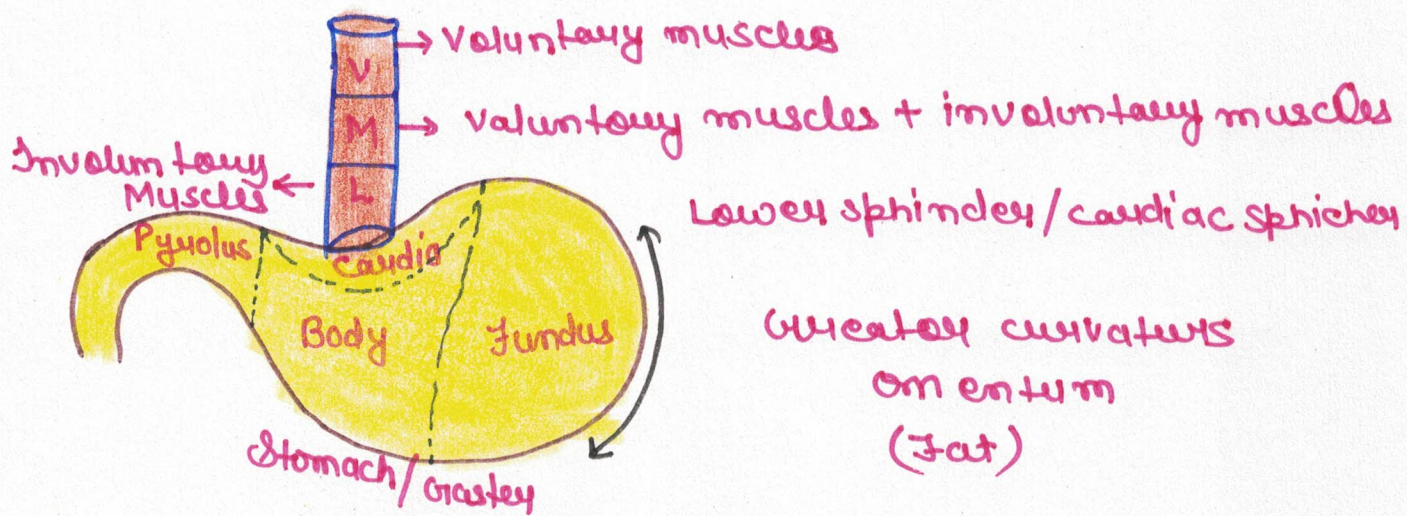 → Voluntary muscles
V
M
→ Valuntory muscles + involuntary muscles
Involuntary
Muscles ←
L
Lower sphinder/cardiac sphicher
Pyrolus
Cardio
Body
Fundus
Greator curvaturs
omentum
(Fat)
Stomach/Gaster